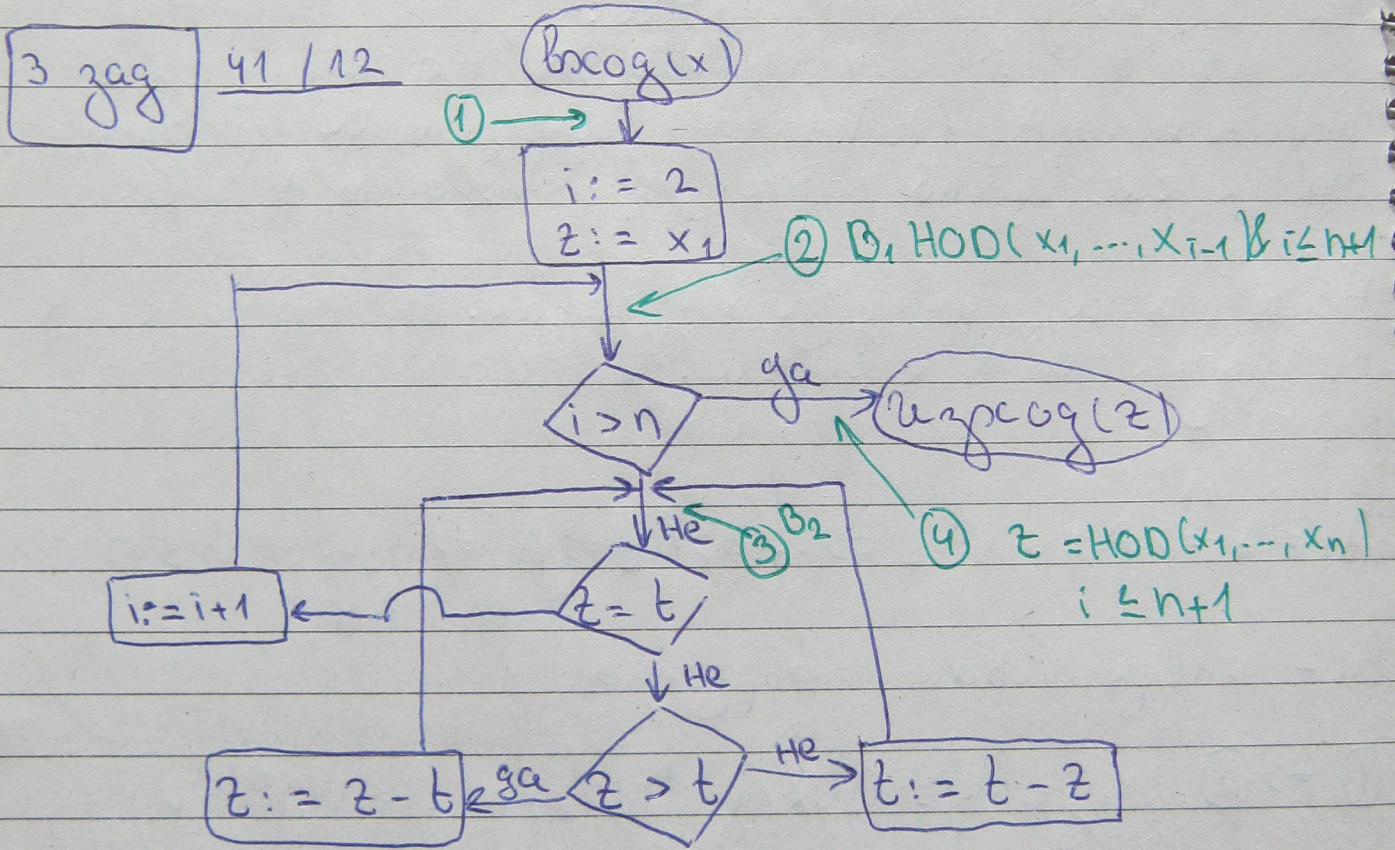 3 зад 41/12
вход(x)
①
i := 2
z := x₁
② B₁ НОD(x₁, ..., xᵢ₋₁) & i ≤ n+1
i > n
да
изход(z)
Не
③ B₂
④ z = НОD(x₁, ..., xₙ)
i ≤ n+1
z = t
i := i+1
Не
z > t
да
z := z - t
Не
t := t - z